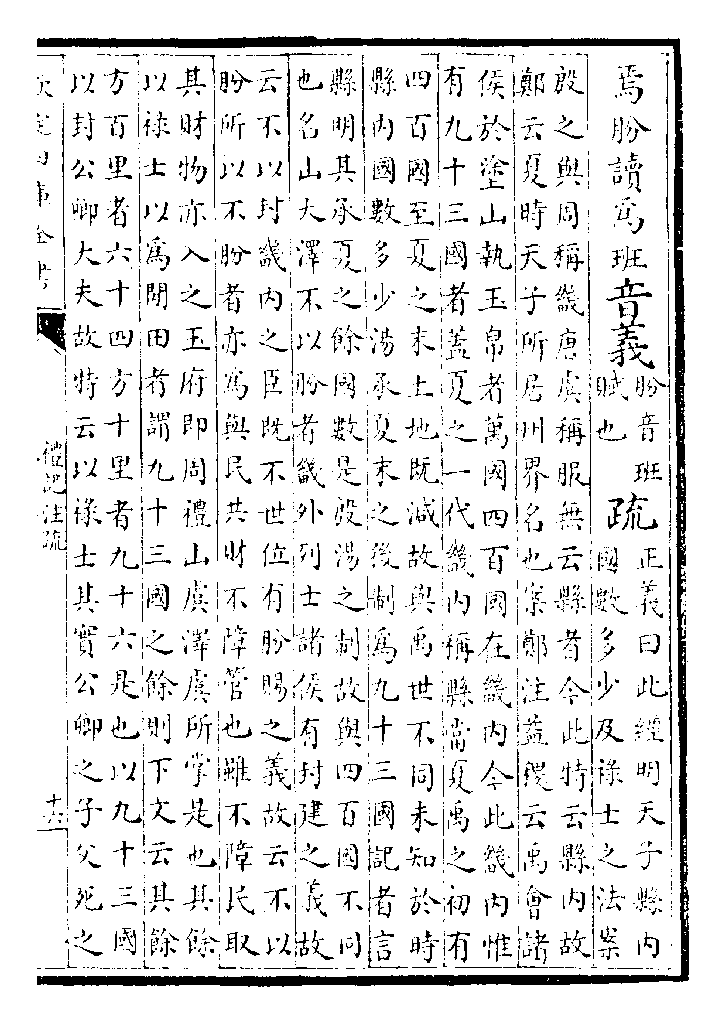 焉朌讀為班音義朌音班賦也疏正義曰此經明天子縣內
國數多少及祿士之法案
殷之與周稱畿唐虞稱服無云縣者今此特云縣內故
鄭云夏時天子所居州界名也案鄭注益稷云禹會諸
侯於塗山執玉帛者萬國四百國在畿內今此畿內惟
有九十三國者蓋夏之一代畿內稱縣當夏禹之初有
四百國至夏之末土地既減故與禹世不同未知於時
縣內國數多少湯承夏末之後制為九十三國記者言
縣明其承夏之餘國數是殷湯之制故與四百國不同
也名山大澤不以朌者畿外列士諸侯有封建之義故
云不以封畿內之臣既不世位有朌賜之義故云不以
朌所以不朌者亦為與民共財不障管也雖不障民取
其財物亦入之玉府即周禮山虞澤虞所掌是也其餘
以祿士以為閒田者謂九十三國之餘則下文云其餘
方百里者六十四方十里者九十六是也以九十三國
以封公卿大夫故特云以祿士其實公卿之子父死之
欽定四庫全書
禮記注疏